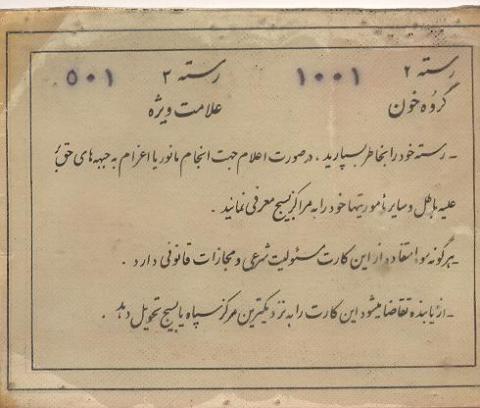 رسته ۲ ۱۰۰۱ رسته ۲ ۵۰۱
گروه خون علامت ویژه
ـ رسته خود را بخاطر بسپارید ، در صورت اعلام جهت انجام مانور یا اعزام به جبهه های حق
علیه باطل و سایر مأموریتها خود را به مراکز بسیج معرفی نمائید .
ـ هرگونه سوء استفاده از این کارت مسئولیت شرعی و مجازات قانونی دارد .
ـ از یابنده تقاضا میشود این کارت را به نزدیکترین مرکز سپاه یا بسیج تحویل دهد .